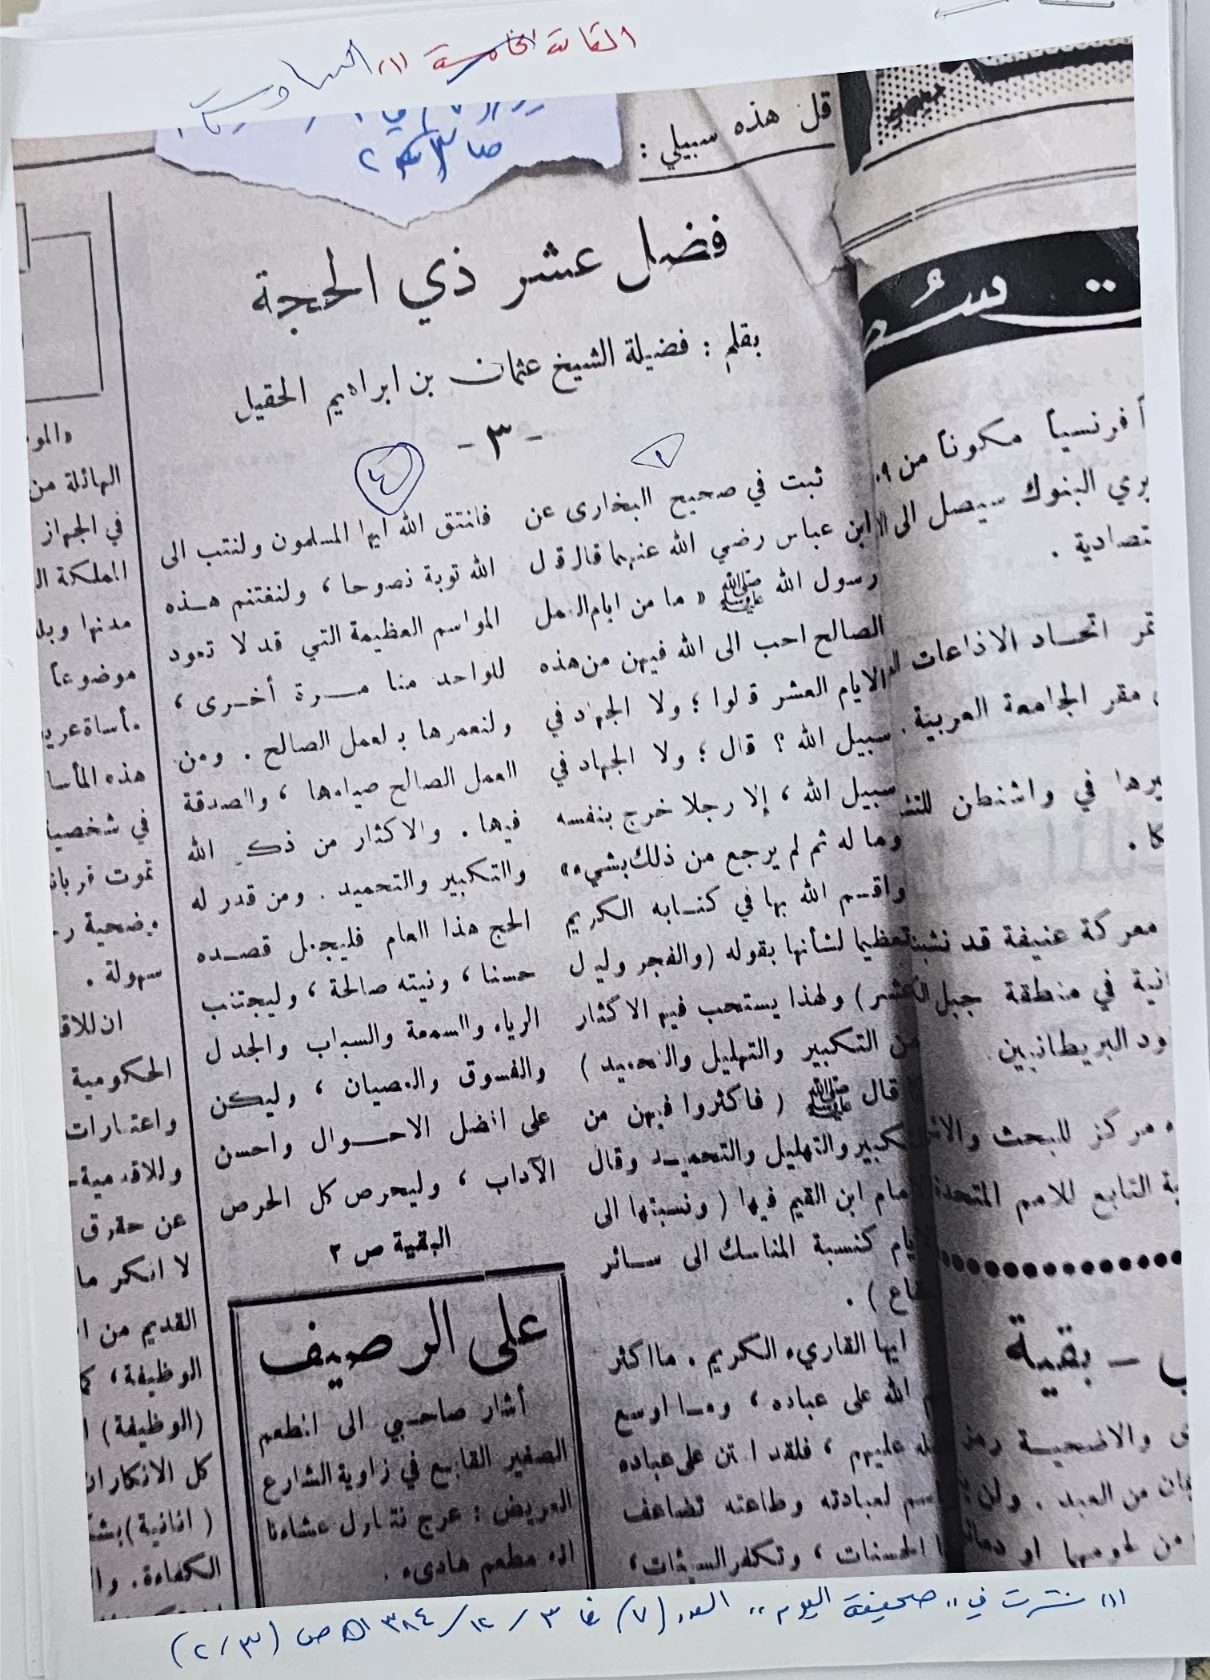 المقالة الخامسة (١) السادسة
ص ٣ ٢
قل هذه سبيلي :
فضل عشر ذي الحجة
بقلم : فضيلة الشيخ عثمان بن ابراهيم الحقيل
- ٣ -
١
ثبت في صحيح البخارى عن
ابن عباس رضي الله عنهما قال قال
رسول الله ﷺ « ما من ايام العمل
الصالح احب الى الله فيهن من هذه
الايام العشر قالوا ؛ ولا الجهاد في
سبيل الله ؟ قال ؛ ولا الجهاد في
سبيل الله ، إلا رجلا خرج بنفسه
وماله ثم لم يرجع من ذلك بشيء»
واقسم الله بها في كتابه الكريم
تعظيما لشأنها بقوله (والفجر وليال
عشر) ولهذا يستحب فيها الاكثار
من التكبير والتهليل والتحميد )
قال ﷺ ( فاكثروا فيهن من
التكبير والتهليل والتحميد وقال
الامام ابن القيم فيها ( ونسبتها الى
الايام كنسبة المناسك الى سائر
البقاع ) .
ايها القاريء الكريم . ما اكثر
الله على عباده ، وما اوسع
عليهم ، فلقد امتن على عباده
لعبادته وطاعته تضاعف
الحسنات ، وتكفر السيئات ،
٤
فلنتق الله ايها المسلمون ولنتب الى
الله توبة نصوحا ، ولنغتنم هذه
المواسم العظيمة التي قد لا تعود
للواحد منا مرة أخرى ،
ولنعمرها بالعمل الصالح . ومن
العمل الصالح صيامها ، والصدقة
فيها . والاكثار من ذكر الله
والتكبير والتحميد . ومن قدر له
الحج هذا العام فليجعل قصده
حسنا ، ونيته صالحة ، وليجتنب
الرياء والسمعة والسباب والجدال
والفسوق والعصيان ، وليكن
على افضل الاحوال واحسن
الآداب ، وليحرص كل الحرص
البقية ص ٢
على الرصيف
أشار صاحبي الى المطعم
الصغير القابع في زاوية الشارع
العريض : عرج نتناول عشاءنا
انه مطعم هادىء .
أ فرنسياً مكوناً من ٠٩
يري البنوك سيصل الى
تصادية .
تمر اتحاد الاذاعات
مقر الجامعة العربية .
يرها في واشنطن
كا .
معركة عنيفة قد
انية في منطقة جبل
ود البريطانيين
مركز للبحث
ية التابع للامم المتحدة
- بقية
والاضحية
من العبد . ولن
من لحومها او
«المو
الهائلة من
في الجهاز
المملكة ال
مدنها وبلد
موضوعاً
مأساة عرب
هذه المأسا
في شخصي
تموت قربان
ضحية ر
سهولة .
ان للاق
الحكومية
واعتبارات
وللاقدمية
عن حقوق
لا انكر ما
القديم من ا
الوظيفة ،
(الوظيفة) ا
كل الانكار
( انانية ) بشـ
الكفاءة . وا
(١) نشرت في ,, صحيفة اليوم ,, العدد (٧) في ٣ / ١٢ / ١٣٨٤ هـ ص (٢/٣)